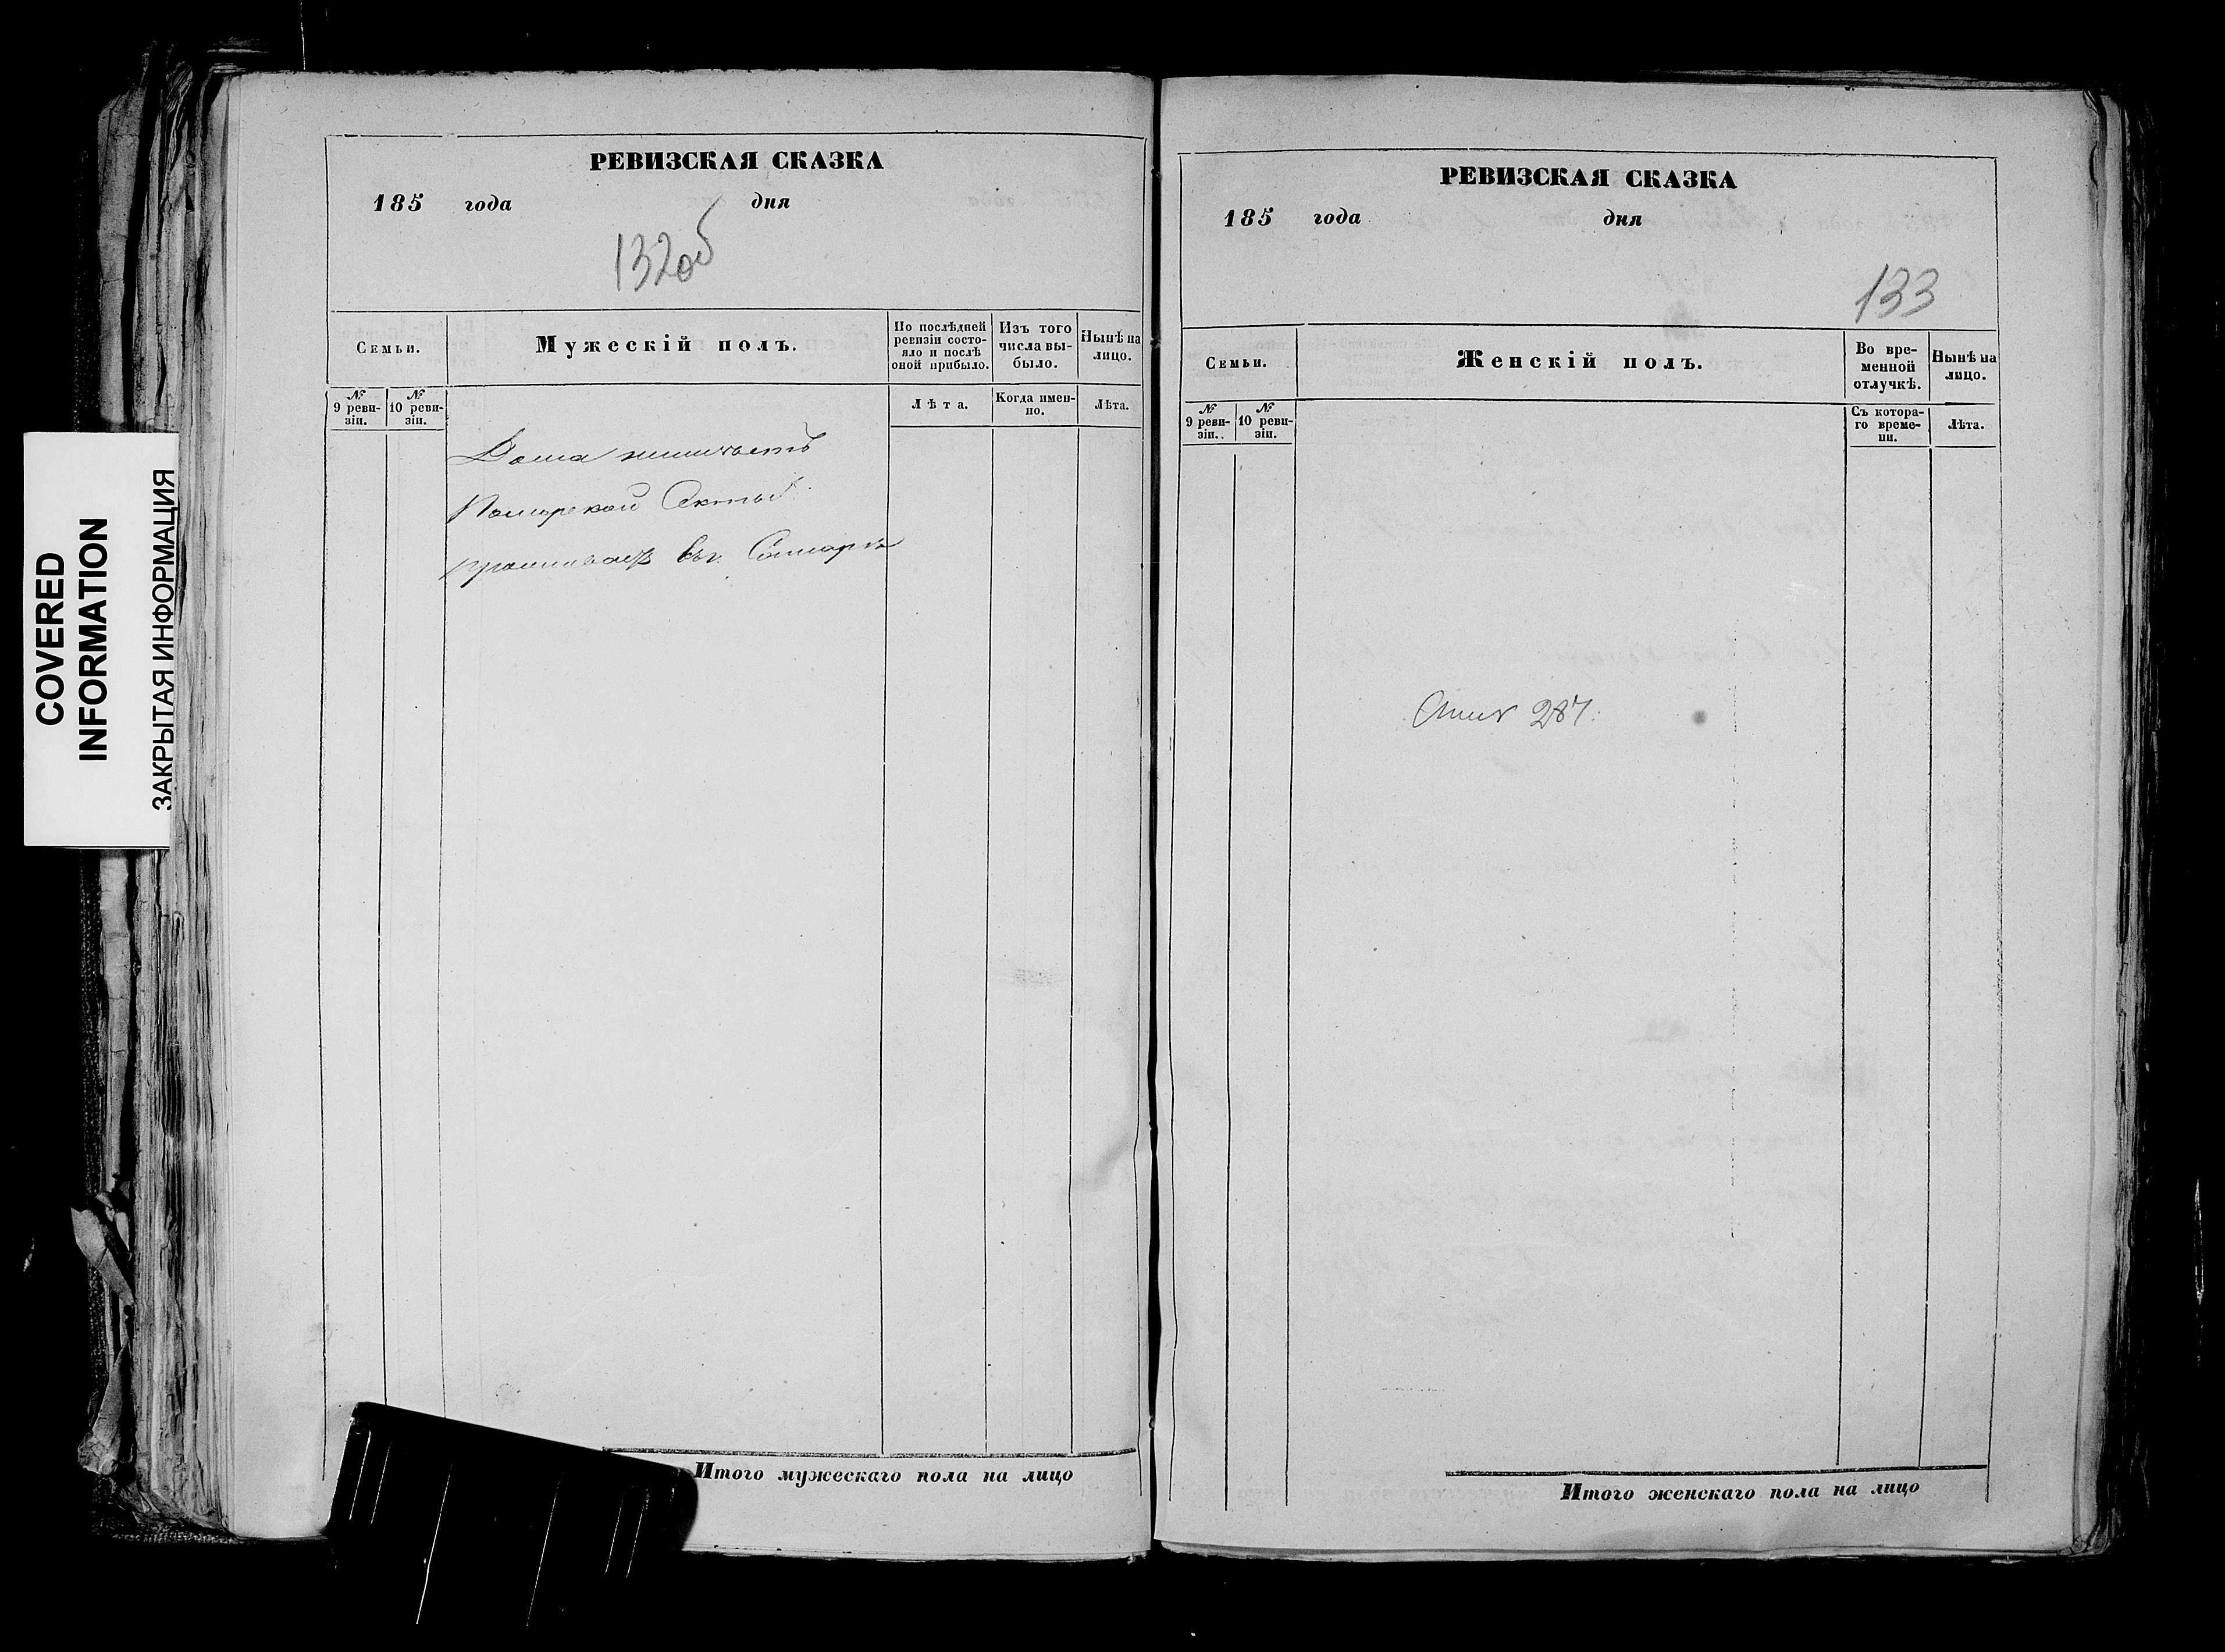 COVERED
INFORMATION
ЗАКРЫТАЯ ИНФОРМАЦИЯ
РЕВИЗСКАЯ СКАЗКА
185 года дня
132об
Семьи.
Мужескій полъ.
По послѣдней
ревизіи состо-
яло и послѣ
оной прибыло.
Изъ того
числа вы-
было.
Нынѣ на
лицо.
№
9 реви-
зіи.
№
10 реви-
зіи.
Лѣта.
Когда имен-
но.
Лѣта.
Дома неимѣетъ
Поморской Секты
проживаетъ въ г. Самарѣ
Итого мужескаго пола на лицо
РЕВИЗСКАЯ СКАЗКА
185 года дня
133
Семьи.
Женскій полъ.
Во вре-
менной
отлучкѣ.
Нынѣ на
лицо.
№
9 реви-
зіи.
№
10 реви-
зіи.
Съ котора-
го време-
ни.
Лѣта.
287.
Итого женскаго пола на лицо